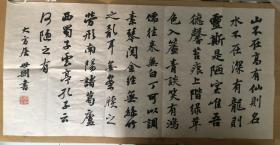 山不在高有仙則名
水不在深有龍則
靈斯是陋室惟吾
德馨苔痕上階綠草
色入簾青談笑有鴻
儒往來無白丁可以調
素琴閱金經無絲竹
之亂耳無案牘之
勞形南陽諸葛廬
西蜀子雲亭孔子云
何陋之有
大方居
書